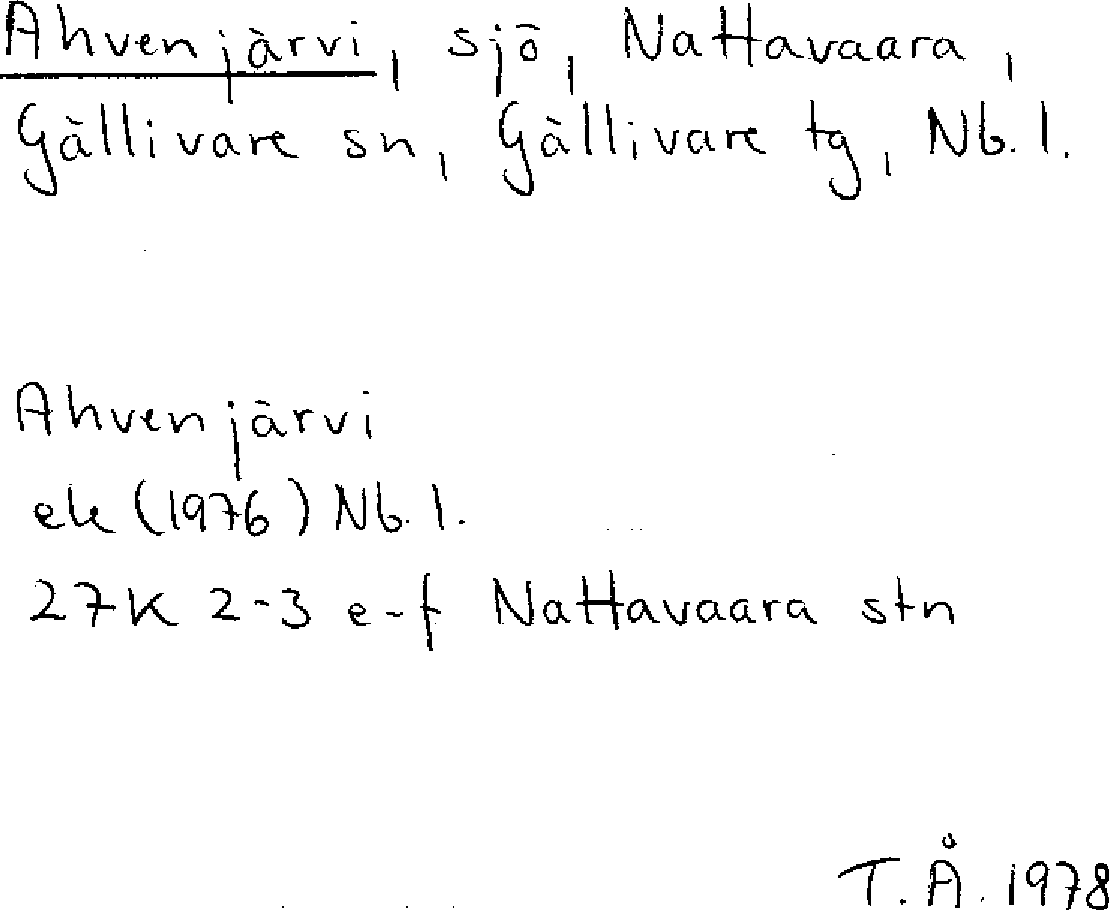 Ahvenjärvi, sjö, Nattavaara,
Gällivare sn, Gällivare tg, Nb. l.
Ahvenjärvi
ek (1976) Nb. l.
27K 2-3 e-f Nattavaara stn
T. Å. 1978